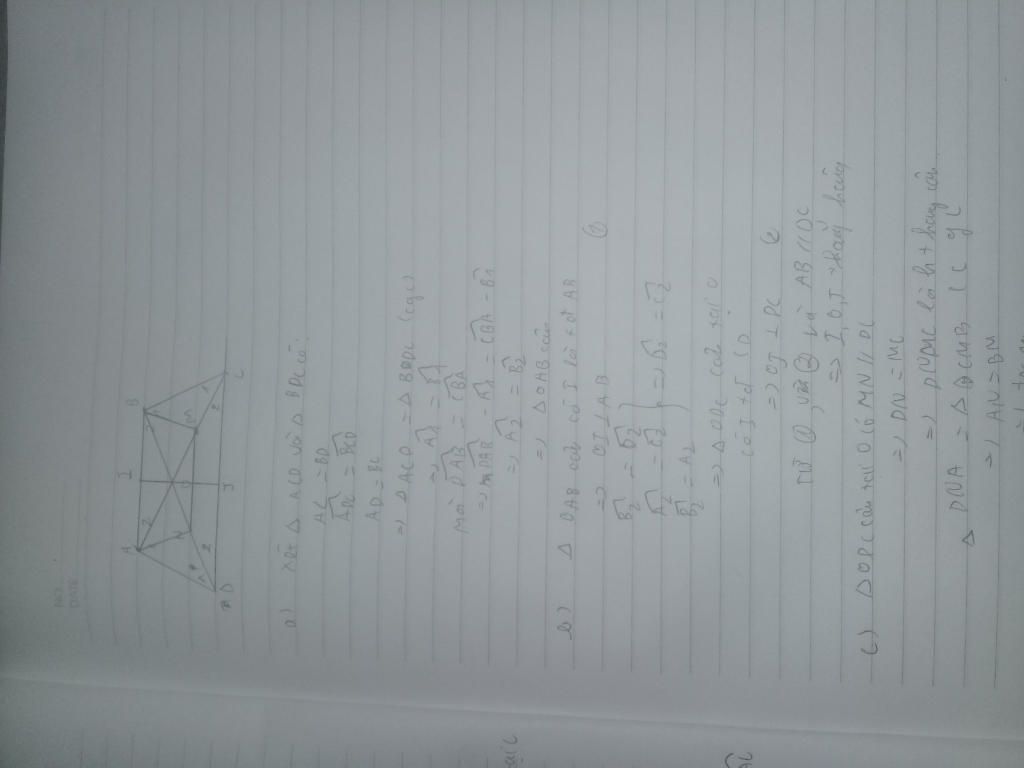 NO.
DATE
A I B
2
N O M
1 2 2 1
D J C
a) Xét Δ ACD và Δ BDC có:
AC = BD
AD = BC
=> Δ ACD = Δ BDC (cgc)
=> A1 = B1
Mà DAB = CBA
=> DAB - A1 = CBA - B1
=> A2 = B2
=> Δ OAB cân
b) Δ OAB cân có I là tđ AB
=> OI ⊥ AB ①
=> Δ ODC cân tại O
có J tđ CD
=> OJ ⊥ DC
Từ ①, và ② và AB // DC
=> I, O, J thẳng hàng
c) Δ ODC cân tại O có MN // DC
=> DN = MC
=> DNMC là ht thang cân
Δ DNA = Δ CMB (c g c)
=> AN = BM